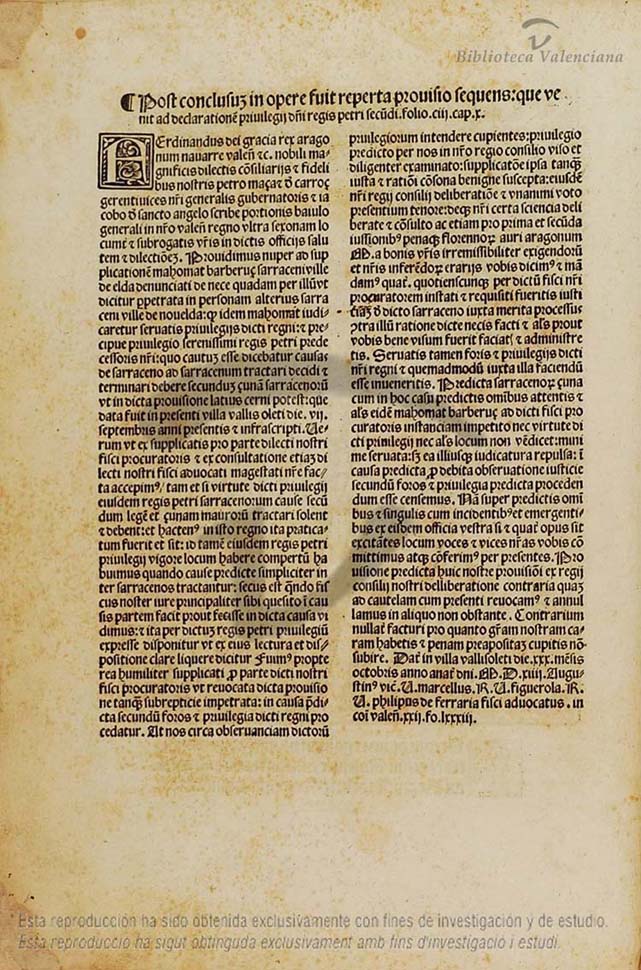 Biblioteca Valenciana
¶ Post conclusuʒ in opere fuit reperta prouisio sequens: que ve
nit ad declarationē priuilegij dn̄i regis petri secūdi. folio. ciij. cap. x.
FErdinandus dei gracia rex arago
num nauarre valen̄ ⁊c. nobili ma⸗
gnificis dilectis cōsiliarijs ⁊ fideli
bus nostris petro maçaʒ ꝺ carroç
gerentiuices nr̄i generalis gubernatoris ⁊ ia
cobo ꝺ sancto angelo scribe portionis baiulo
generali in nr̄o valen̄ regno vltra sexonam lo
cumē ⁊ subrogatis vr̄is in dictis officijs salu
tem ⁊ dilectioēʒ. Prouidimus nuper ad sup
plicationē mahomat barberuç sarraceni ville
de elda denunciati de nece quadam per illūʒ vt
dicitur ꝑpetrata in personam alterius sarra
ceni ville de nouelda: ꝙ idem mahomat iudi⸗
caretur seruatis priuilegijs dicti regni: ⁊ pre⸗
cipue priuilegio serenissimi regis petri prede
cessoris nr̄i: quo cautuʒ esse dicebatur causas
de sarraceno ad sarracenum tractari decidi ⁊
terminari debere secunduʒ çunā sarracenorū
vt in dicta prouisione latius cerni potest: que
data fuit in presenti villa vallis oleti die. vij.
septembris anni presentis ⁊ infrascripti. Ue⸗
rum vt ex supplicatis pro parte dilecti nostri
fisci procuratoris ⁊ ex consultatione etiaʒ di
lecti nostri fisci aduocati magestati nr̄e fac⸗
ta accepimꝰ/ tam et si virtute dicti priuilegij
eiusdem regis petri sarracenorum cause secū
dum legē et çunam maurorū tractari solent
⁊ debent: et hactenꝰ in isto regno ita pratica⸗
tum fuerit et sit: id tamē eiusdem regis petri
priuilegij vigore locum habere compertū ha
buimus quando cause predicte simpliciter in
ter sarracenos tractantur: secus est qn̄do fis
cus noster iure principaliter sibi quesito ī cau
sis partem facit prout fecisse in dicta causa vi
dimus: ⁊ ita per dictuʒ regis petri priuilegiū
expresse disponitur vt ex eius lectura et dis⸗
positione clare liquere dicitur Fuimꝰ propte
rea humiliter supplicati ꝓ parte dicti nostri
fisci procuratoris vt reuocata dicta prouisio
ne tanqʒ subrepticie impetrata: in causa p̄di⸗
cta secundū foros ⁊ priuilegia dicti regni pro
cedatur. At nos circa obseruanciam dictorū
priuilegiorum intendere cupientes: priuilegio
predicto per nos in nr̄o regio consilio viso et
diligenter examinato: supplicatōe ipsa tanqʒ
iusta ⁊ ratiōi cōsona benigne suscepta: eiusdē
nr̄i regij consilij deliberatiōe ⁊ vnanimi voto
presentium tenore: deqʒ nr̄i certa sciencia deli
berate ⁊ cōsulto ac etiam pro prima et secūda
iussionibꝰ penaqʒ florenoꝝ auri aragonum
M. a bonis vr̄is irremissibiliter exigendorū
et nr̄is inferēdoꝝ erarijs vobis dicimꝰ ⁊ mā
damꝰ quat̄. quotienscunqʒ per dictū fisci nr̄i
procuratorem instati ⁊ requisiti fueritis iusti
ciaʒ ꝺ dicto sarraceno iuxta merita processus
ꝯtra illū ratione dicte necis facti ⁊ als̄ prout
vobis bene visum fuerit faciatʼ ⁊ administre
tis. Seruatis tamen foris ⁊ priuilegijs dicti
nr̄i regni ⁊ quemadmodū iuxta illa faciendū
esse inueneritis. Predicta sarracenoꝝ çuna
cum in hoc casu predictis om̄ibus attentis ⁊
als̄ eidē mahomat barberuç ad dicti fisci pro
curatoris instanciam impetito nec virtute di
cti priuilegij nec als̄ locum non vēdicet: mini
me seruata: sʒ ea illiusqʒ iudicatura repulsa: ī
causa predicta, ꝓ debita obseruatione iusticie
secundū foros ⁊ priuilegia predicta proceden
dum esse censemus. Nā super predictis om̄i
bus ⁊ singulis cum incidentibꝰ et emergenti⸗
bus ex eisdem officia vestra si ⁊ quat̄ opus sit
excitātes locum voces ⁊ vices nr̄as vobis cō
mittimus atqʒ cōferimꝰ per presentes. Pro
uisione predicta huic nostre prouisiōi ex regij
consilij nostri delliberatione contraria quaʒ
ad cautelam cum presenti reuocamꝰ ⁊ annul
lamus in aliquo non obstante. Contrarium
nullat̄ facturi pro quanto gr̄am nostram ca⸗
ram habetis ⁊ penam preapositaʒ cupitis nō
subire. Dat̄ in villa vallisoleti die. xxx. mēsis
octobris anno anat̄ dn̄i. M. D. xiiij. Augu⸗
stinꝰ vic̄. U. marcellus. R. U. figuerola. R.
U. philipus de ferraria fisci aduocatus. in
coī valen̄. xxij. fo. lxxxiij.
Esta reproducción ha sido obtenida exclusivamente con fines de investigación y de estudio.
Esta reproducció ha sigut obtinguda exclusivament amb fins d'investigació i estudi.